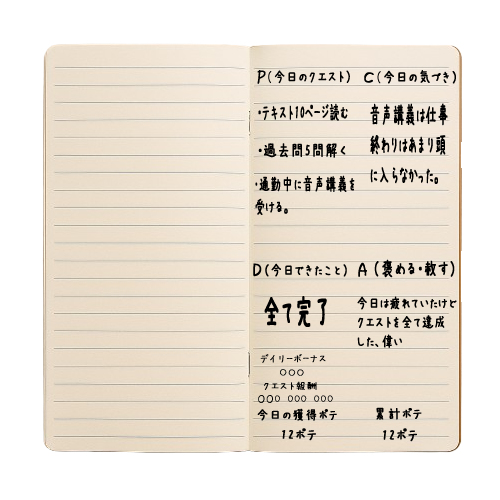 P(今日のクエスト)
・テキスト10ページ読む
・過去問5問解く
・通勤中に音声講義を
受ける。
C(今日の気づき)
音声講義は仕事
終わりはあまり頭
に入らなかった。
D(今日できたこと)
全て完了
A(褒める・赦す)
今日は疲れていたけど
クエストを全て達成
した、偉い
デイリーボーナス
○○○
クエスト報酬
○○○ ○○○ ○○○
今日の獲得ポテ
12ポテ
累計ポテ
12ポテ